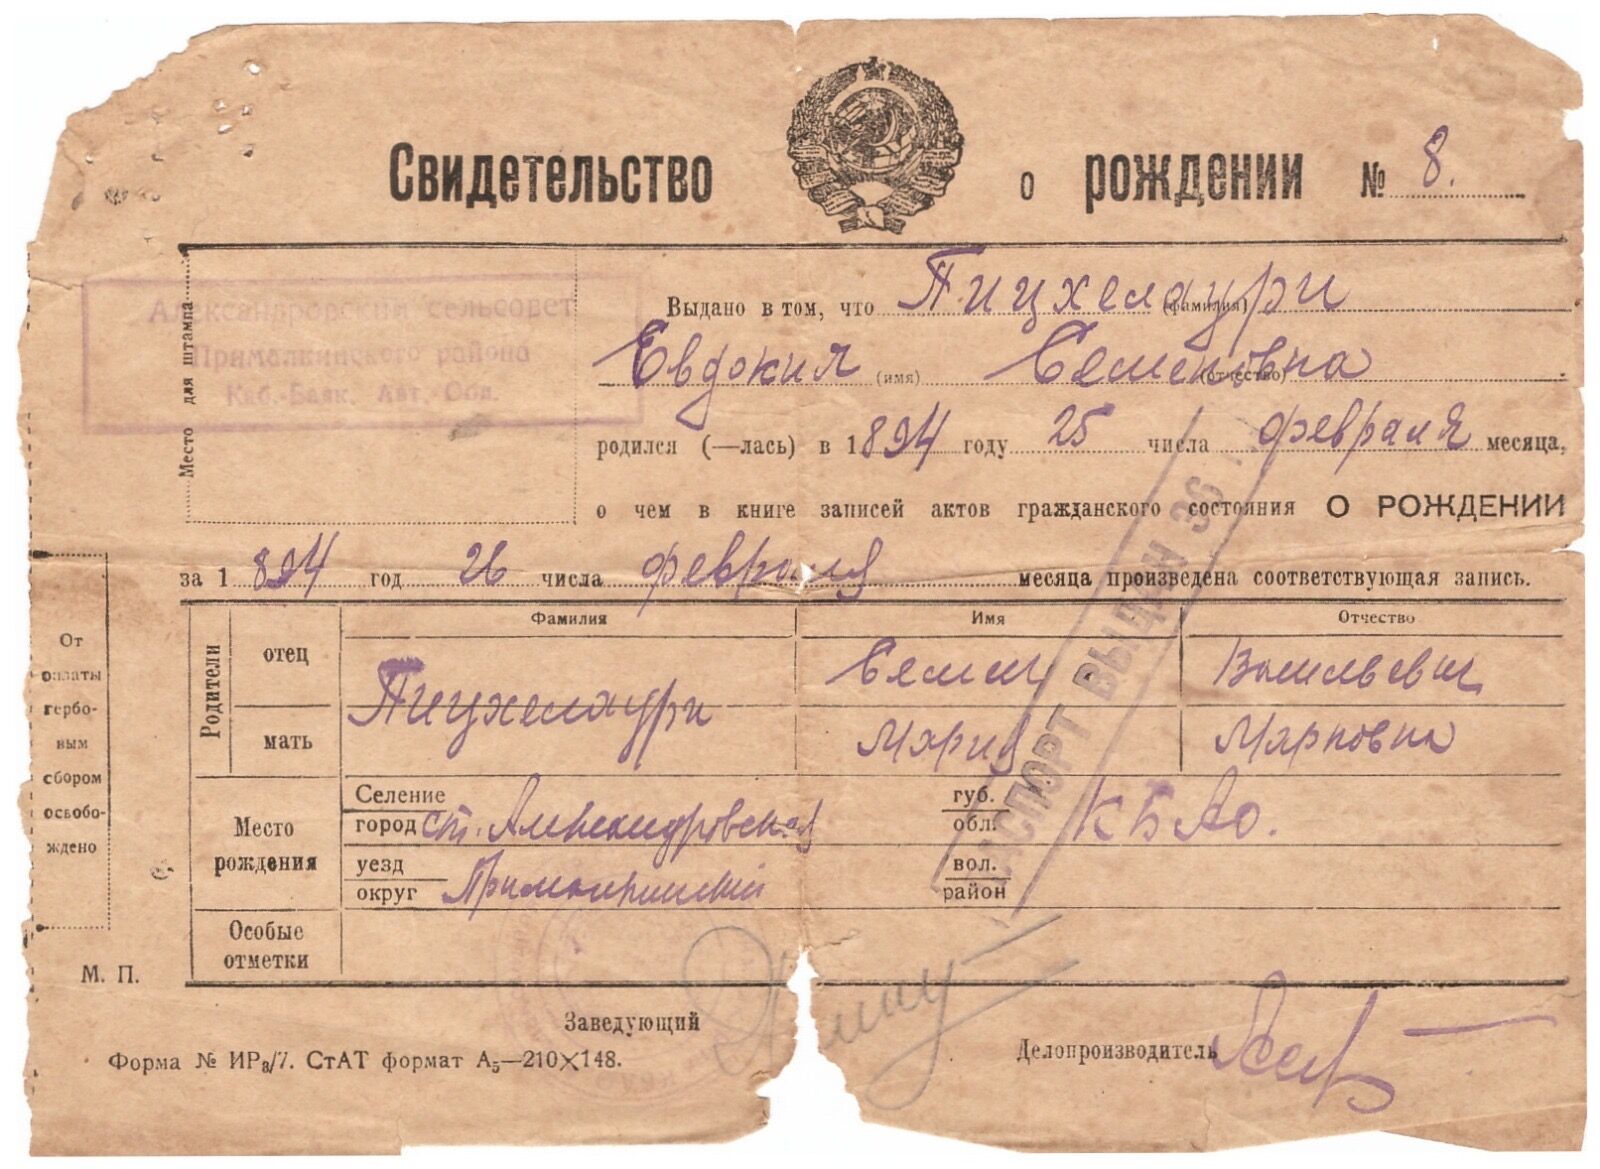 Свидетельство о рождении № 8.
Александровский сельсовет
Прималкинского района
Каб.-Балк. Авт. Обл.
Место для штампа
Выдано в том, что Пицхелаури (фамилия)
Евдокия (имя) Семеновна (отчество)
родился (—лась) в 1894 году 25 числа февраля месяца,
о чем в книге записей актов гражданского состояния О РОЖДЕНИИ
за 1894 год 26 числа февраля месяца произведена соответствующая запись.
ПАСПОРТ ВЫДАН 36
Фамилия Имя Отчество
Родители
отец Пицхелаури Семен Васильевич
мать Мария Марковна
Место рождения
Селение
город ст. Александровская
губ.
обл. КБАО.
уезд
округ Прималкинский
вол.
район
Особые отметки
От оплаты гербовым сбором освобождено
М. П.
Заведующий
Делопроизводитель
Форма № ИРз/7. СтАТ формат А5—210×148.